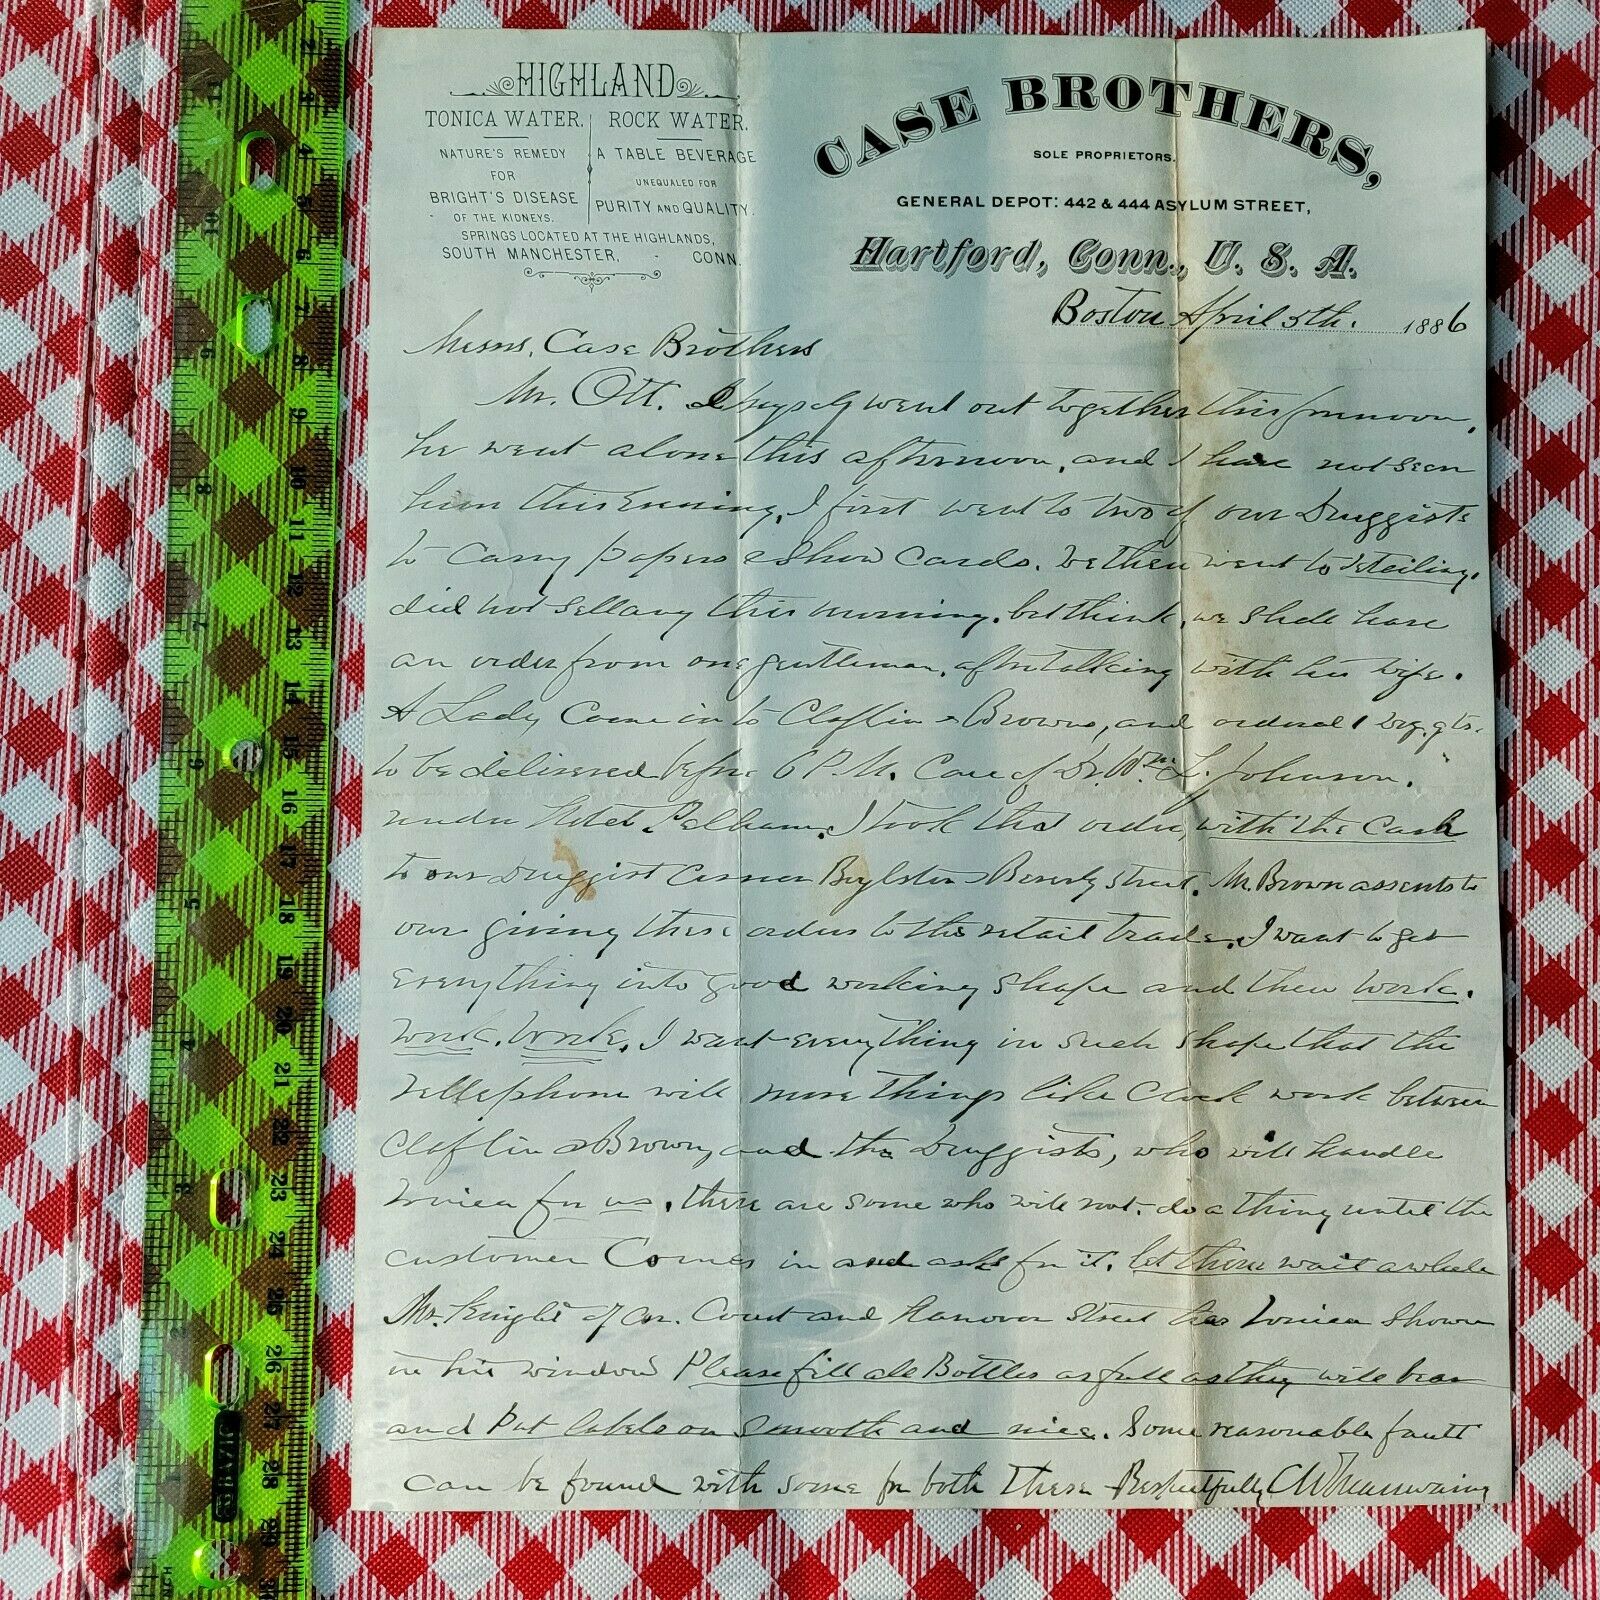 HIGHLAND
TONICA WATER. ROCK WATER.
NATURE'S REMEDY A TABLE BEVERAGE
FOR UNEQUALED FOR
BRIGHT'S DISEASE PURITY AND QUALITY.
OF THE KIDNEYS.
SPRINGS LOCATED AT THE HIGHLANDS,
SOUTH MANCHESTER, CONN.
CASE BROTHERS,
SOLE PROPRIETORS.
GENERAL DEPOT: 442 & 444 ASYLUM STREET,
Hartford, Conn., U. S. A.
Boston April 5th. 1886
Messrs. Case Brothers
Mr. Ott. & myself went out together this forenoon,
he went alone this afternoon, and I have not seen
him this Evening, I first went to two of our Druggists
to carry papers & Show Cards. We then went to retailing.
did not sell any this morning. but think, we shall have
an order from one gentleman, after talking with his wife.
A Lady Came in to Claflin & Browns, and ordered 1 qts.
to be delivered before 6 P.M. Care of Dr. Wm L. Johnson.
under Hotel Pelham. I took that order, with the Cash
to our Druggist Corner Boylston & Street. Mr. Brown assents to
our giving these orders to the retail trade. I want to get
everything into good working shape and then work.
work. work. I want everything in such shape that the
Tellephone will move things like Clock work between
Claflin & Brown, and the Druggists, who will handle
Tonica for us. there are some who will not do a thing until the
customer Comes in and asks for it. let them wait awhile
Mr. Knight of cor. Court and Hanover Street has Tonica Shown
in his window Please fill all Bottles as full as they will bear
and put labels on smooth and nice. Some reasonable fault
can be found with some for both these Respectfully